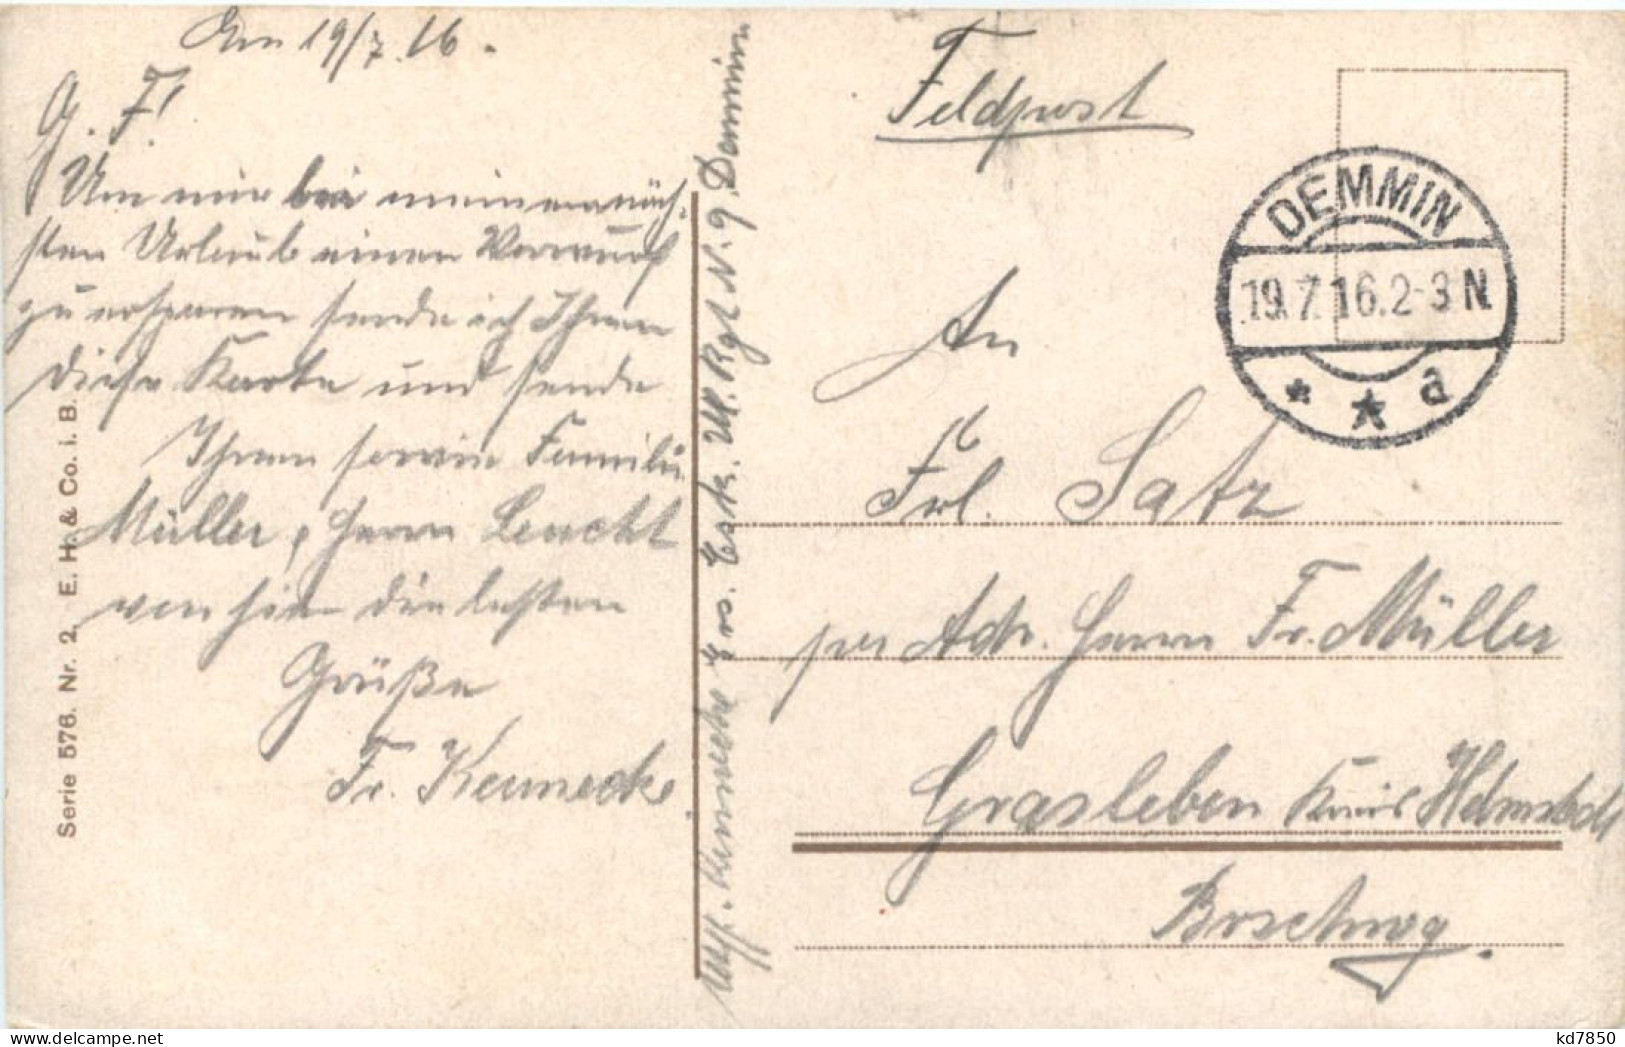 Dm 19/7.16.
G. F!
Um mir bei meinem näch-
sten Urlaub einen Vorwurf
zu ersparen sende ich Ihnen
diese Karte und sende
Ihnen sowie Familie
Müller, Herrn Leucht
von hier die besten
Grüße
Fr. Kennecke.
Uffz. Kennecke Ers. Esk. Ul. Rgt N. 9 Demmin
Serie 576. Nr. 2. E. H. & Co. i. B.
Feldpost
DEMMIN
19.7.16.2-3 N.
* * a
An
Frl. Satz
per Adr. Herrn Fr. Müller
Grasleben Kreis Helmstedt
Brschwg.
kd7850